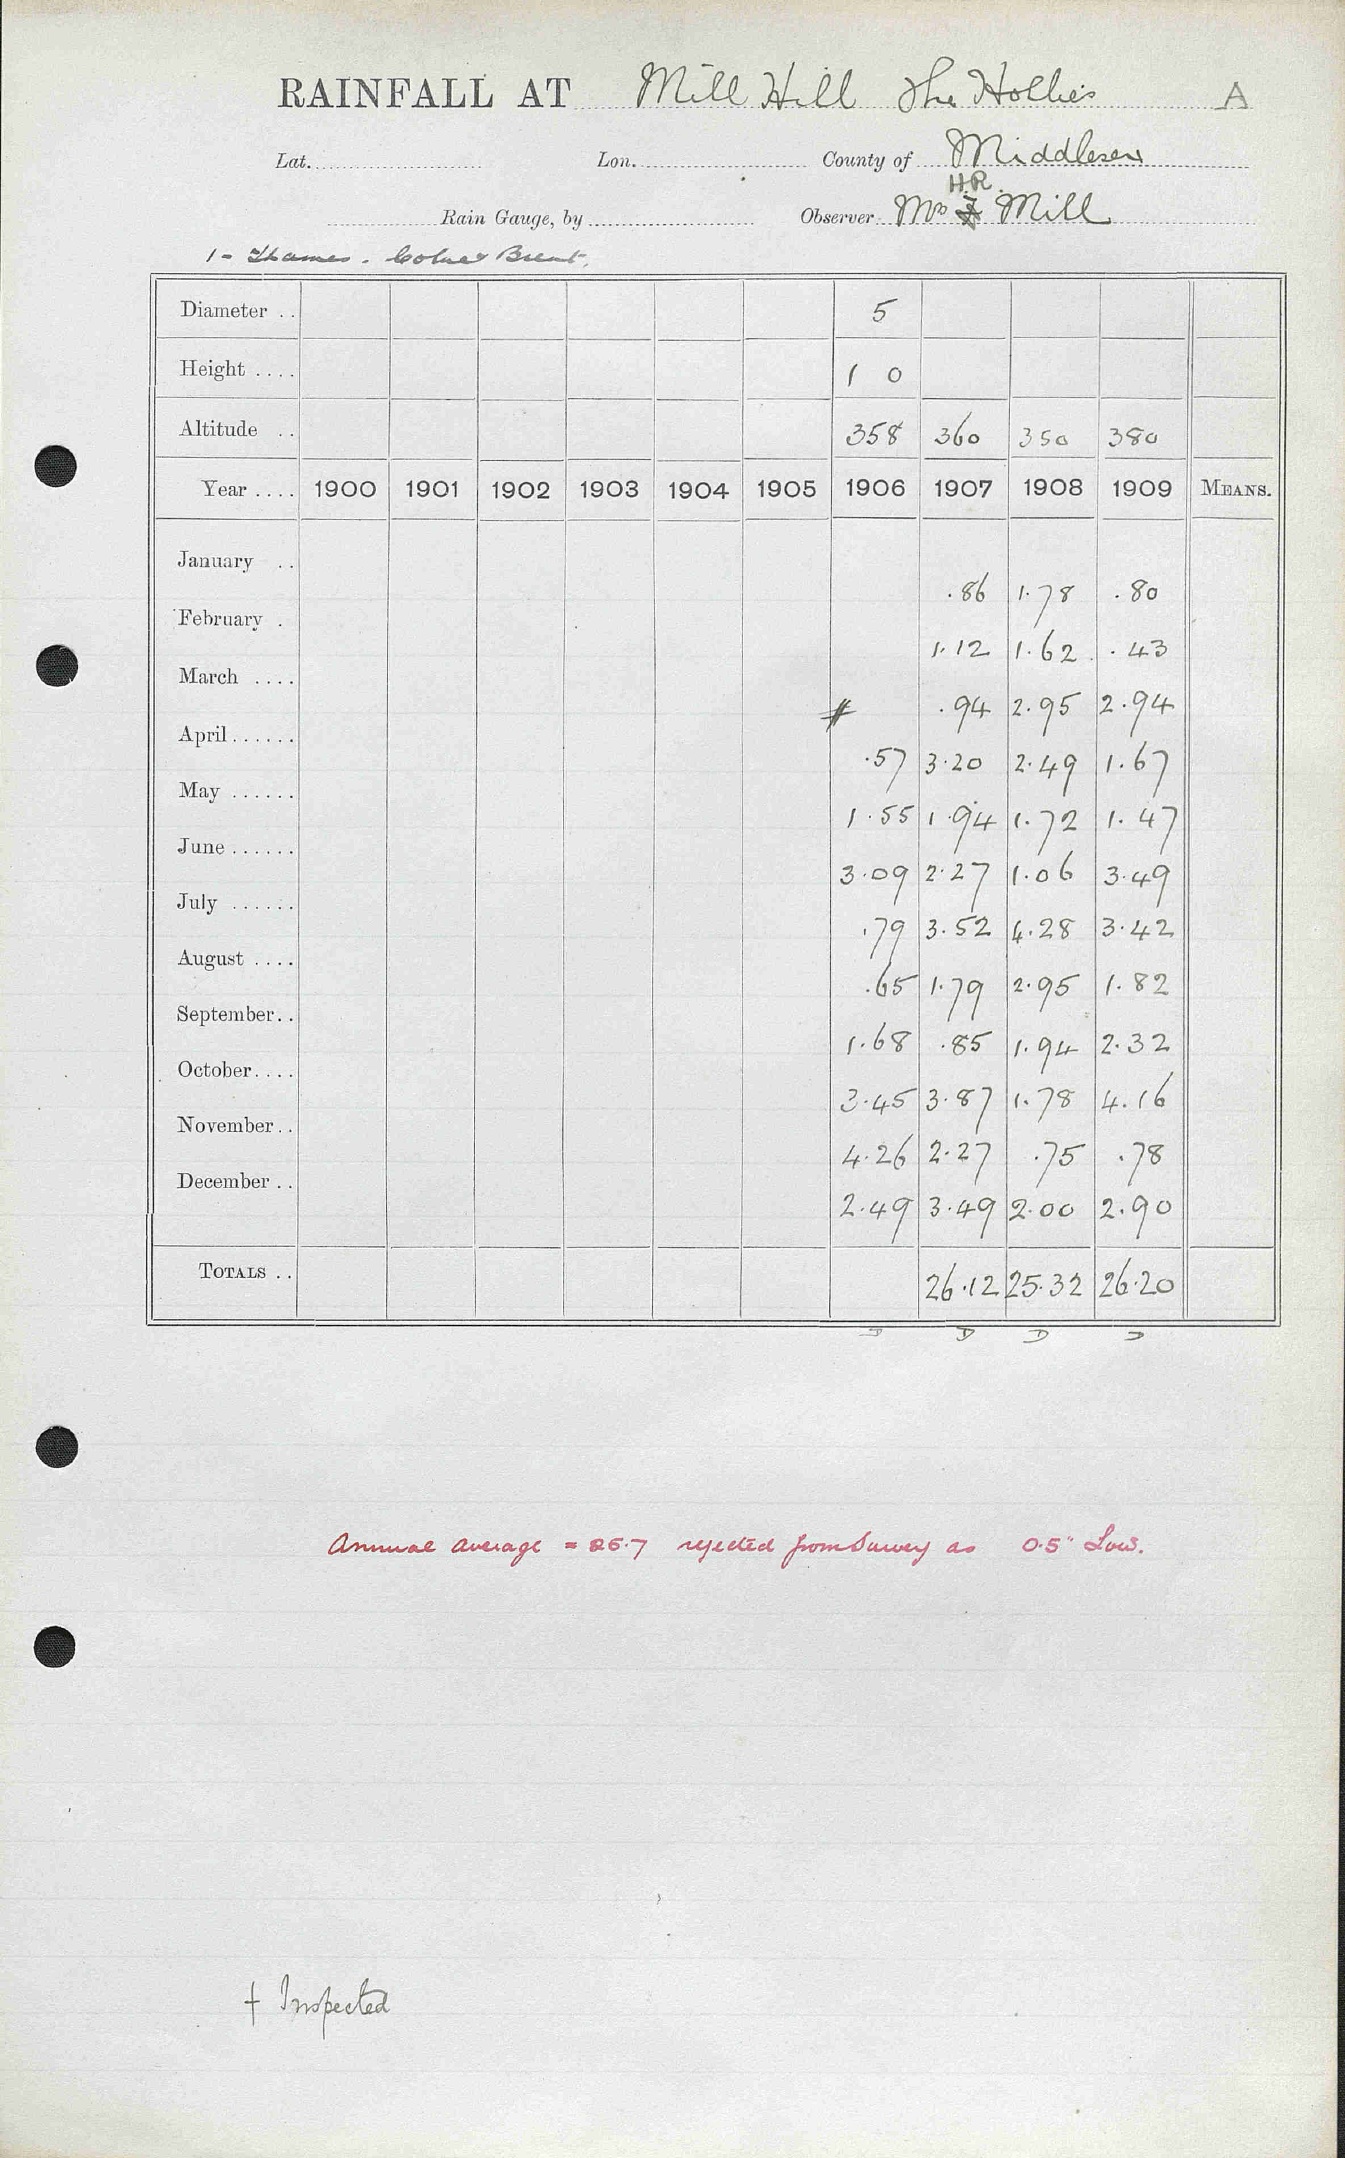 RAINFALL AT Mill Hill The Hollies A
Lat. Lon. County of Middlesex
H.R.
Rain Gauge, by Observer Mrs Mill
1 - Thames. Colne & Brent.
Diameter .. 5
Height .... 1 0
Altitude .. 358 360 350 380
Year .... 1900 1901 1902 1903 1904 1905 1906 1907 1908 1909 MEANS.
January .. .86 1.78 .80
February . 1.12 1.62 .43
March .... .94 2.95 2.94
April...... .57 3.20 2.49 1.67
May ...... 1.55 1.94 1.72 1.47
June ...... 3.09 2.27 1.06 3.49
July ...... .79 3.52 4.28 3.42
August .... .65 1.79 2.95 1.82
September.. 1.68 .85 1.94 2.32
October.... 3.45 3.87 1.78 4.16
November.. 4.26 2.27 .75 .78
December .. 2.49 3.49 2.00 2.90
TOTALS .. 26.12 25.32 26.20
D D D D
Annual average = 26.7 rejected from Survey as 0.5" Low.
† Inspected